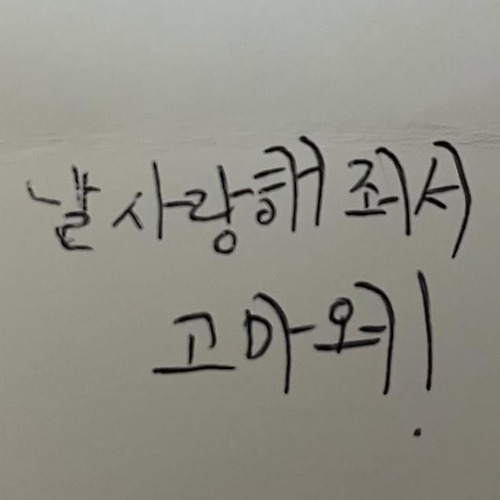 날 사랑해 줘서
고마워!